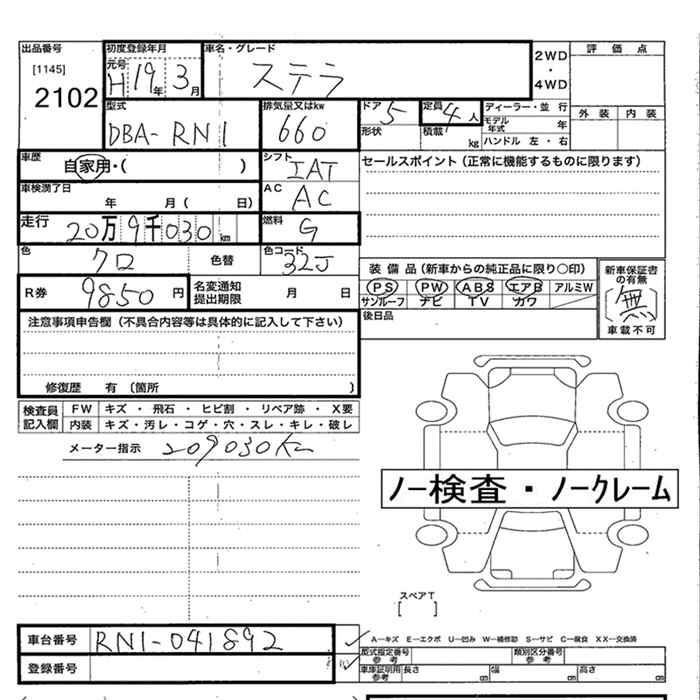 出品番号 初度登録年月 車名・グレード 評価点
[1145] 元号 H19年 3月 ステラ 2WD・4WD
2102 外装 内装
型式 排気量又はkw ドア 5 定員 4人 ディーラー・並行
DBA-RN1 660 形状 積載 kg モデル年式 年
ハンドル 左・右
車歴 自家用・( ) シフト IAT セールスポイント(正常に機能するものに限ります)
車検満了日 年 月( 日) AC AC
走行 20万9千030km 燃料 G
色 クロ 色替 色コード 32J 装備品(新車からの純正品に限り○印) 新車保証書の有無
R券 9850円 名変通知提出期限 月 日 PS PW ABS エアB アルミW 無
サンルーフ ナビ TV カワ 車載不可
注意事項申告欄(不具合内容等は具体的に記入して下さい) 後日品
修復歴 有(箇所 )
検査員記入欄 FW キズ・飛石・ヒビ割・リペア跡・X要
内装 キズ・汚レ・コゲ・穴・スレ・キレ・破レ
メーター指示 209030Km
ノー検査・ノークレーム
スペアT
[ ]
車台番号 RN1-041892 A-キズ E-エクボ U-凹み W-補修跡 S-サビ C-腐食 XX-交換済
型式指定番号参考 類別区分番号参考
登録番号 車庫証明用参考 長さ cm 幅 cm 高さ cm